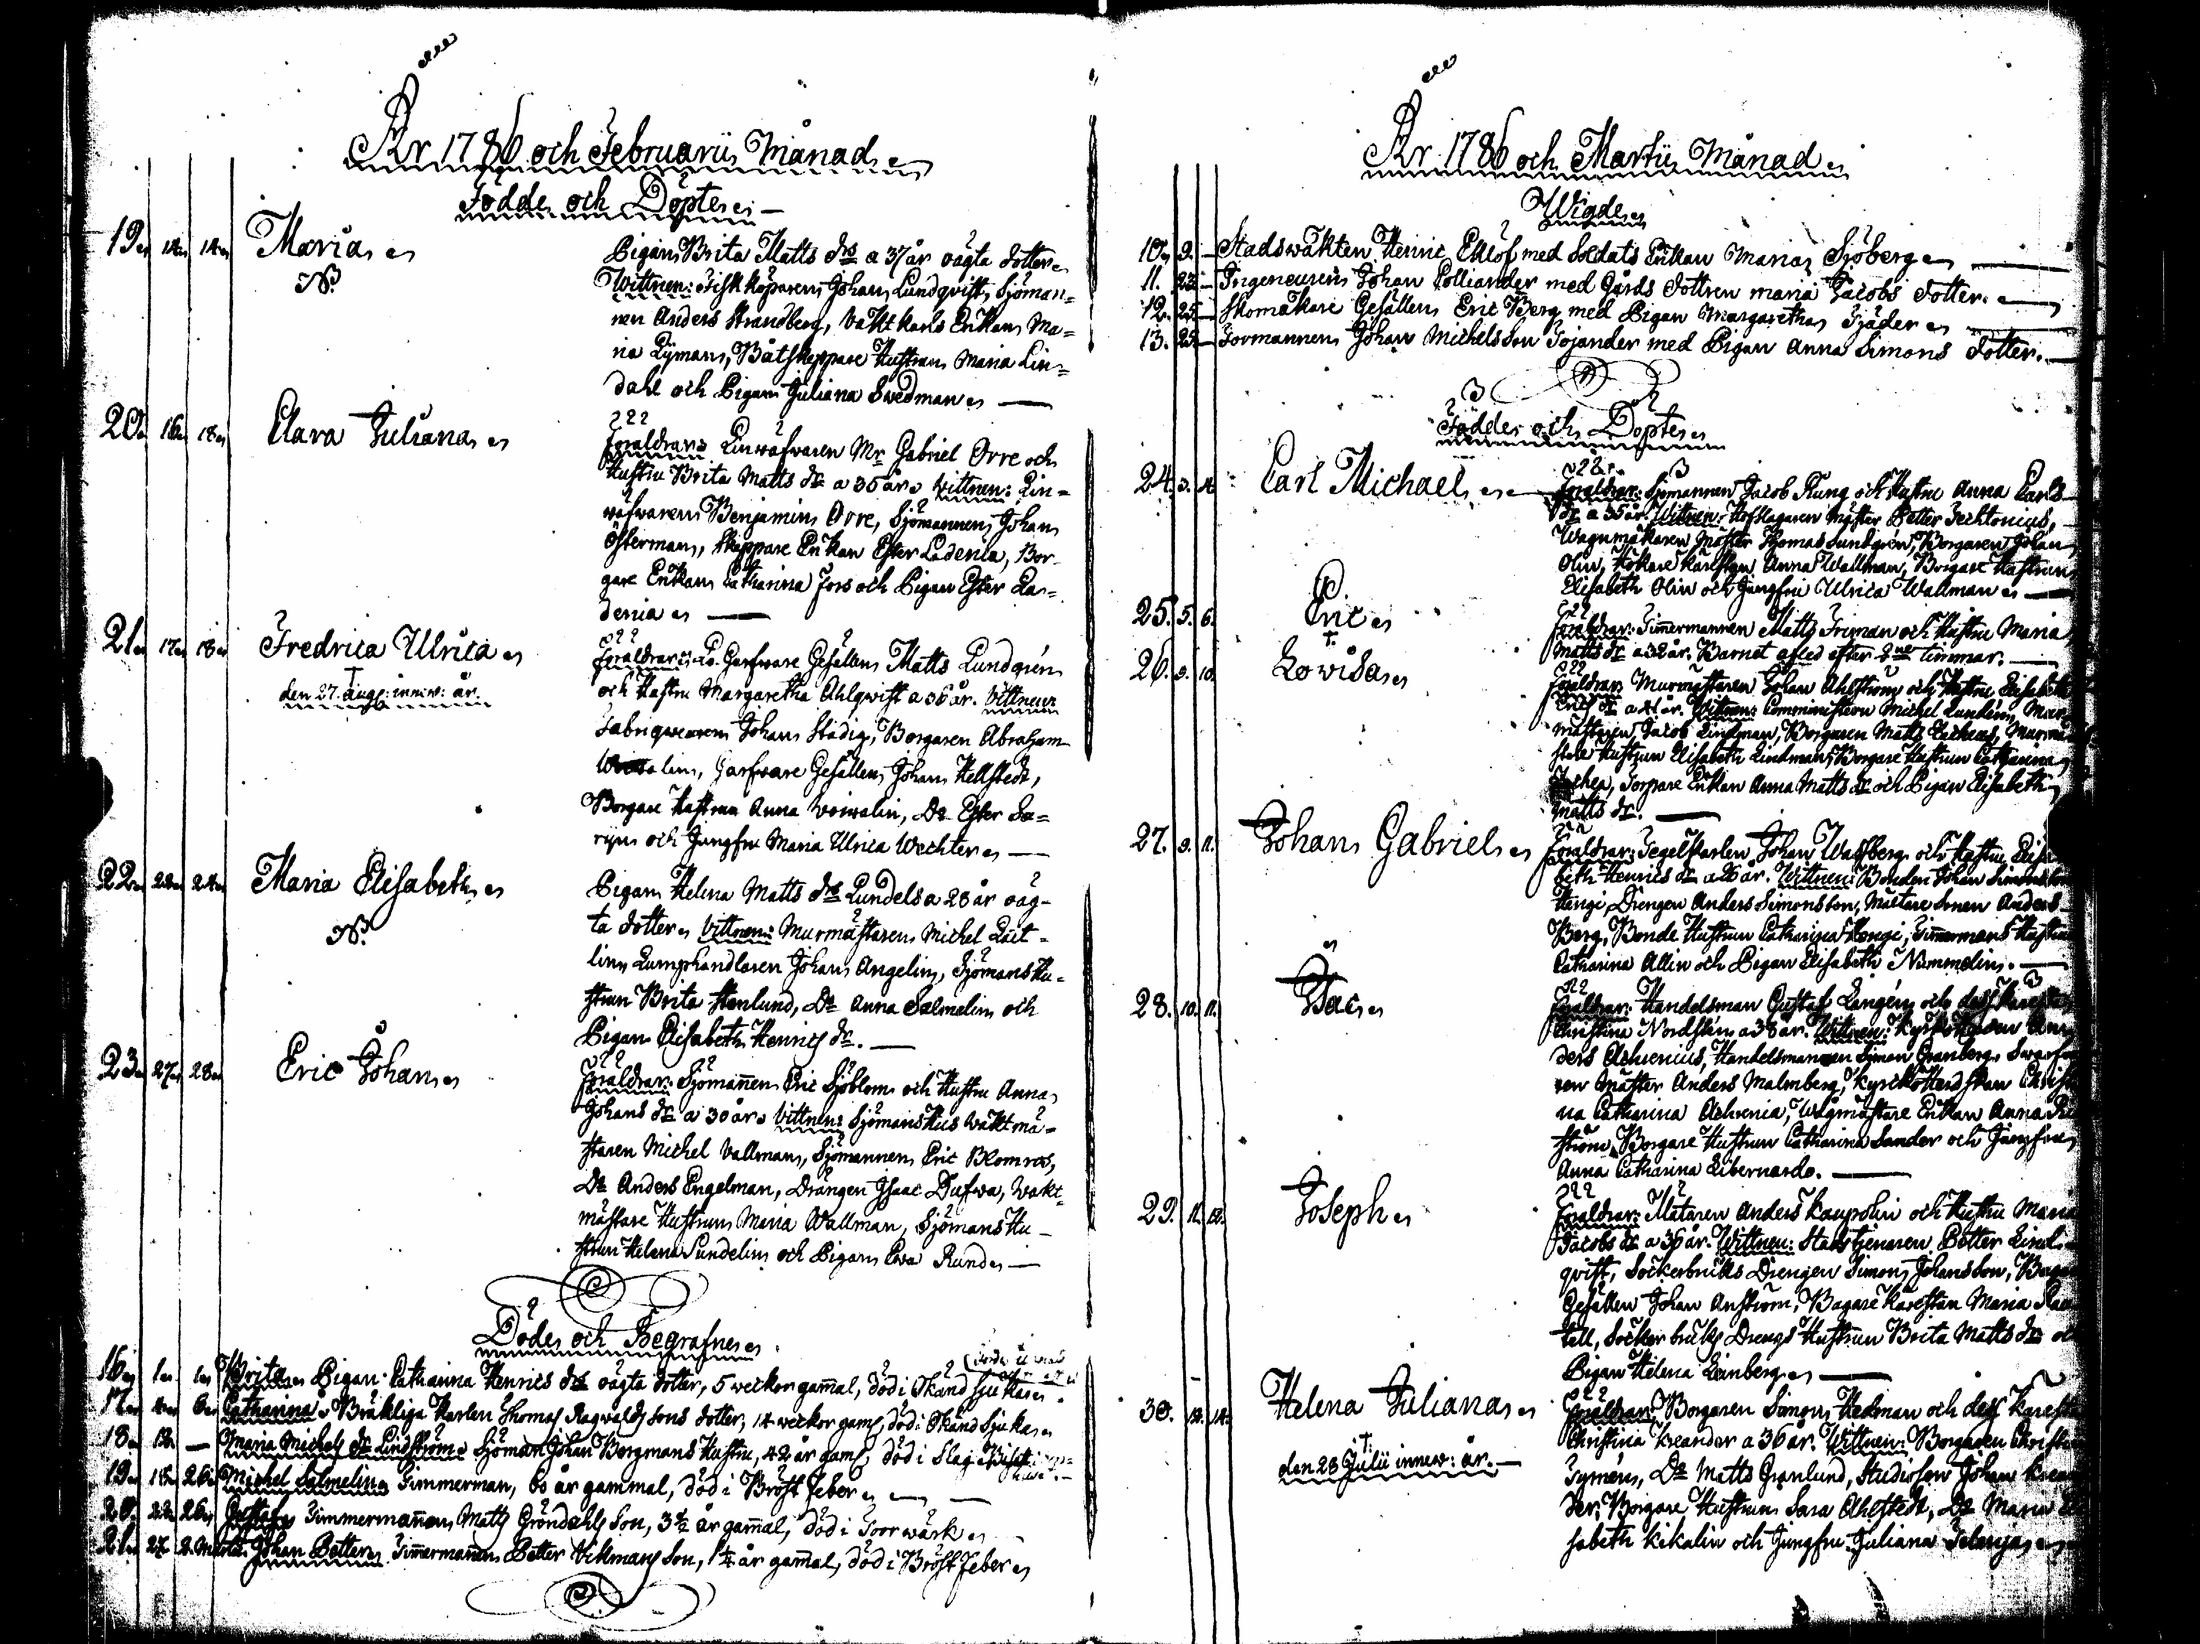 År 1786 och Februarii Månad
Födde och Döpte
19 14 14 Maria
Pigan Brita Matts dr a 37 år oägta dotter
Wittnen: Fiskköparen Johan Lundqvist, Sjöman=
nen Anders Strandberg, Vaktkarls Enkan Ma=
ria Lyman, Båtskeppare Hustrun Maria Lin=
dahl och Pigan Juliana Swedman
20 16 18 Clara Juliana
Föräldrar: Linwäfwaren Mr Gabriel Orre och
Hustru Brita Matts dr a 35 år. Wittnen: Lin=
wäfwaren Benjamin Orre, Sjömannen Johan
Österman, Skeppare Enkan Ester Ladenia, Bor-
gare Enkan Catharina Fors och Pigan Ester La=
denia
21 17 18 Fredrica Ulrica
den 27 Aug: innew: år.
Föräldrar: Garfware Gesällen Matts Lundgrén
och Hustru Margaretha Ahlqwist a 36 år. Vittnen
Fabriqueuren Johan Städig, Borgaren Abraham
lin, Garfware Gesällen Johan Hellstedt,
Borgare Hustrun Anna Woiwalin, Do Ester Sa=
rijn och Jungfru Maria Ulrica Wechter
22 23 24 Maria Elisabeth
Pigan Helena Matts dr Lundels a 28 år oäg-
ta dotter Vittnen: Murmästaren Michel Lait-
lin, Lumphandlaren Johan Angelin, Sjömans Hu-
strun Brita Stenlund, Do Anna Salmelin och
Pigan Elisabeth Henrics dr.
23 27 28 Eric Johan
Föräldrar: Sjömannen Eric Sjöblom och Hustru Anna
Johans dr a 30 år. Vittnen: Sjömanshus Waktmä-
staren Michel Vallman, Sjömannen Eric Blomros,
Do Anders Engelman, Drängen Isaac Dufwa, Wakt-
mästare Hustrun Maria Wallman, Sjömans Hu-
strun Helena Sundelin och Pigan Ewa Rund
Döde och Begrafne
16 1 1 Brita Pigan Catharina Henrics dr oägta dotter, 5 weckor gammal, död i Okänd sjuka
17 4 6 Catharina Bräkliga Karlen Thomas Ragwalds sons dotter, 14 weckor gaml, död i Okänd Sjuka
18 13 — Maria Michels dr Lindström Sjöman Johan Borgmans Hustru, 42 år gaml, död i Slag
19 18 26 Michel Salmelin Timmerman, 60 år gammal, död i Bröst feber
20 22 26 Gustaf Timmermannen Matts Gröndahls Son, 3½ år gammal, död i Torrwärk
21 27 2 Martii Johan Petter Timmermannen Petter Vikmans Son, 1¼ år gammal, död i Bröst feber
År 1786 och Martii Månad
Wigde
10 9 Stadswakten Henric Eklöf med Soldats Enkan Maria Sjöberg
11. 23 Ingeneuren Johan Polliander med Gårds Dottren Maria Jacobs Dotter.
12. 25 Skomakare Gesällen Eric Berg med Pigan Margaretha Fjäder
13. 29 Formannen Johan Michelsson Tojander med Pigan Anna Simons Dotter.
Födde och Döpte
24. 3. 4. Carl Michael
Föräldrar: Sjömannen Jacob Kung och Hustru Anna Carls
dr a 35 år. Witnen: Hofslagaren Mäster Petter Techtonius,
Wagnmakaren Mäster Thomas Sundgrén, Borgaren Johan
Olin, Hökare Kärestan Anna Wallman, Borgare Hustrun
Elisabeth Olin och Jungfru Ulrica Wallman
25. 5. 6. Eric
Föräldrar: Timmermannen Matts Friman och Hustru Maria
Matts dr a 32 år. Barnet afled efter 2ne timmar.
26. 9. 10. Lovisa
Föräldrar: Murmästaren Johan Ahlström och Hustru Elisabeth
Erics dr a 41 år. Witnen: Comministern Michel Lundén, Mur-
mästaren Jacob Lindman, Borgaren Matts
Hustrun Elisabeth Lindman, Borgare Hustrun Catharina
Torpare Enkan Anna Matts dr och Pigan Elisabeth
Matts dr.
27. 9. 11. Johan Gabriel
Föräldrar: Tegelkarlen Johan Wassberg och Hustru Elisa
beth Henrics dr a 26 år. Wittnen: Bonden Johan Simonsson
Hengi, Drengen Anders Simonsson, Mältare Sonen Anders
Berg, Bonde Hustrun Catharina Hengi, Timmermans Hustrun
Catharina Allin och Pigan Elisabeth Nummelin.
28. 10. 11. Isac
Föräldrar: Handelsman Gustaf Lingén och dess
Christina Nordstén a 38 år. Wittnen: Kyrkoherden An
ders Achrenius, Handelsmannen Simon Granberg, Swarfwa
ren Mäster Anders Malmberg, Kyrkoherdskan Christi
na Catharina Achrenia, Wågmästare Enkan Anna
ström, Borgare Hustrun Catharina Sander och Jungfru
Anna Catharina Libernardo.
29. 11. 12. Joseph
Föräldrar: Mätaren Anders Kaupolin och Hustru Maria
Jacobs dr a 36 år. Wittnen: Stadstjenaren Petter Lind-
qvist, Sockerbruks Drengen Simon Johansson,
Gesällen Johan Anström, Bagare Kärestan Maria
tell, Socker bruks Drengs Hustrun Brita Matts dr och
Pigan Helena Leinberg
30. 12. 14. Helena Juliana
den 28 Julii innew: år.
Föräldrar: Borgaren Simon Hedman och dess Käresta
Christina Keander a 36 år. Wittnen: Borgaren
Do Matts Granlund, Studiosen Johan
der, Borgare Hustrun Sara Ahlstedt, Do Maria
sabeth Kikalin och Jungfru Juliana